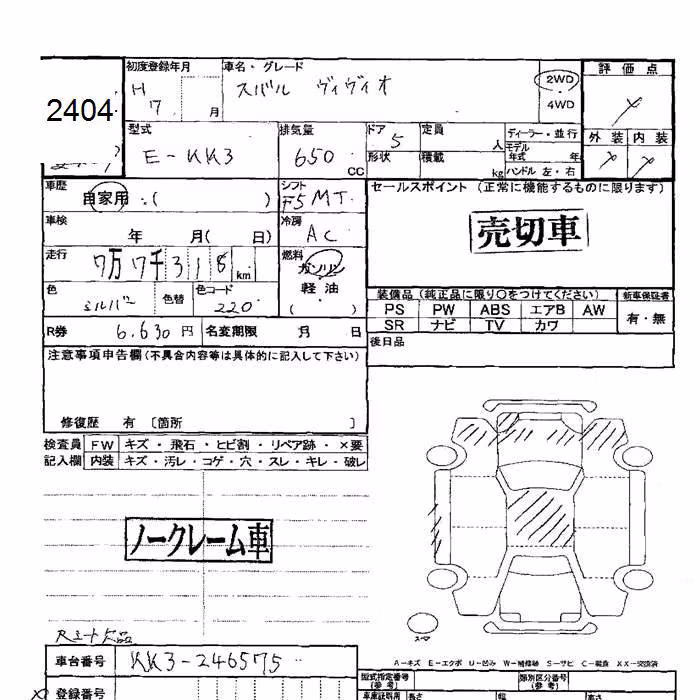 初度登録年月 車名・グレード 評価点
H 7 月 スバル ヴィヴィオ 2WD・4WD ×
2404
型式 排気量 ドア 定員 ディーラー・並行 外装 内装
E-KK3 650 CC 5 人 モデル年式 年 × ×
形状 積載 kg ハンドル 左・右
車歴 自家用・( ) シフト F5 MT セールスポイント (正常に機能するものに限ります)
車検 年 月( 日) 冷房 AC 売切車
走行 7万7千318km 燃料 ガソリン 軽油 ( )
色 シルバー 色替 色コード 220
装備品 (純正品に限り○をつけてください) 新車保証書
PS PW ABS エアB AW 有・無
SR ナビ TV カワ
R券 6,630円 名変期限 月 日 後日品
注意事項申告欄(不具合内容等は具体的に記入して下さい)
修復歴 有 〔箇所 〕
検査員 FW キズ・飛石・ヒビ割・リペア跡・×要
記入欄 内装 キズ・汚レ・コゲ・穴・スレ・キレ・破レ
ノークレーム車
スマ
Rミラー欠品
A-キズ E-エクボ U-凹み W-補修跡 S-サビ C-腐食 XX-交換済
車台番号 KK3-246575
型式指定番号(参考) 類別区分番号(参考)
登録番号 車庫証明用 長さ 幅 高さ